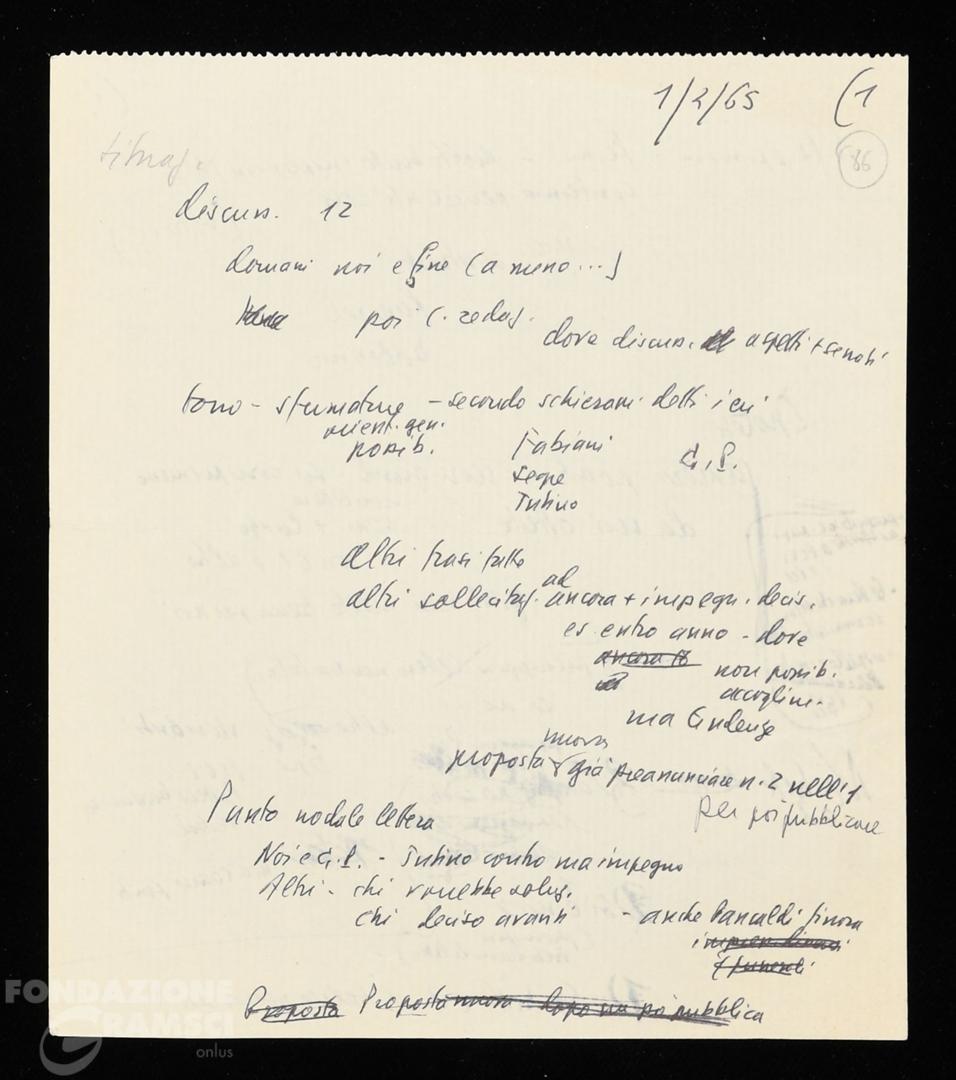 1/2/65 (1
86
discuss. 12
domani noi e fine (a meno...)
poi C. redaz.
dove discuss. aspetti + sentiti
tono - sfumature - secondo schieram. detti ieri
orient. gen.
possib. Fabiani G.P.
Segre
Tutino
altri frasi fatte
altri sollecitaz. ad ancora + impegn. decis.
es. entro anno - dove
ancora
non possib.
accoglim.
ma tendenze
nuova
proposta già preannunciare n. 2 nell'1
per poi pubblicare
Punto nodale lettera
Noi e G.P. - Tutino contro ma impegno
Altri - chi vorrebbe soluz.
chi deciso avanti - anche Pancaldi finora
Proposta Proposta nuova dopo un po' pubblica
FONDAZIONE
GRAMSCI
onlus